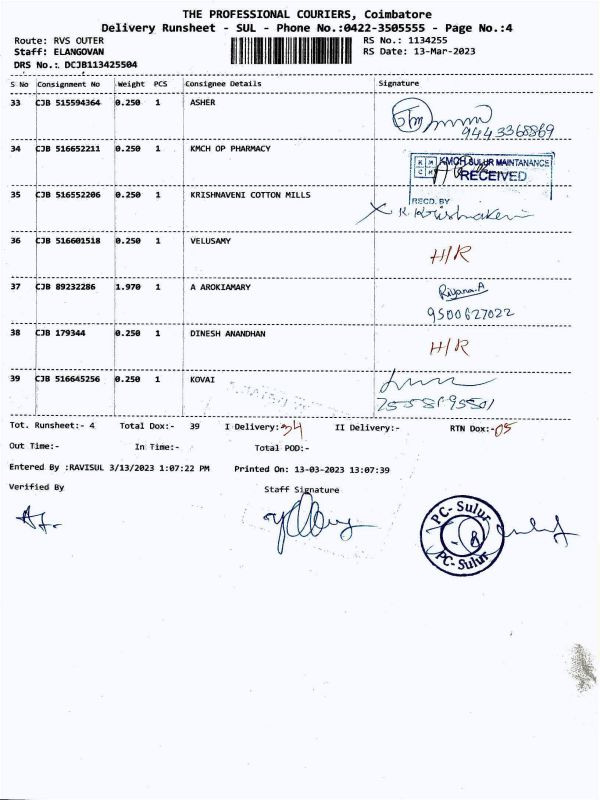 THE PROFESSIONAL COURIERS, Coimbatore
Delivery Runsheet - SUL - Phone No.:0422-3505555 - Page No.:4
Route: RVS OUTER RS No.: 1134255
Staff: ELANGOVAN RS Date: 13-Mar-2023
DRS No.: DCJB113425504
S No Consignment No Weight PCS Consignee Details Signature
33 CJB 515594364 0.250 1 ASHER
9443368869
34 CJB 516652211 0.250 1 KMCH OP PHARMACY
KMCH SULUR MAINTANANCE
RECEIVED
35 CJB 516552206 0.250 1 KRISHNAVENI COTTON MILLS
RECD. BY
36 CJB 516601518 0.250 1 VELUSAMY H/R
37 CJB 89232286 1.970 1 A AROKIAMARY Riyana.A
9500627022
38 CJB 179344 0.250 1 DINESH ANANDHAN H/R
39 CJB 516645256 0.250 1 KOVAI
Tot. Runsheet:- 4 Total Dox:- 39 I Delivery:- 34 II Delivery:- RTN Dox:- 05
Out Time:- In Time:- Total POD:-
Entered By :RAVISUL 3/13/2023 1:07:22 PM Printed On: 13-03-2023 13:07:39
Verified By Staff Signature
PC-Sulur
PC-Sulur